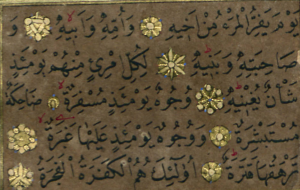 يَوْمَ يَفِرُّ الْمَرْءُ مِنْ أَخِيهِ وَأُمِّهِ وَأَبِيهِ وَ
صَاحِبَتِهِ وَبَنِيهِ لِكُلِّ امْرِئٍ مِنْهُمْ يَوْمَئِذٍ
شَأْنٌ يُغْنِيهِ وُجُوهٌ يَوْمَئِذٍ مُسْفِرَةٌ ضَاحِكَةٌ
مُسْتَبْشِرَةٌ وَوُجُوهٌ يَوْمَئِذٍ عَلَيْهَا غَبَرَةٌ
تَرْهَقُهَا قَتَرَةٌ أُولَٰئِكَ هُمُ الْكَفَرَةُ الْفَجَرَةُ